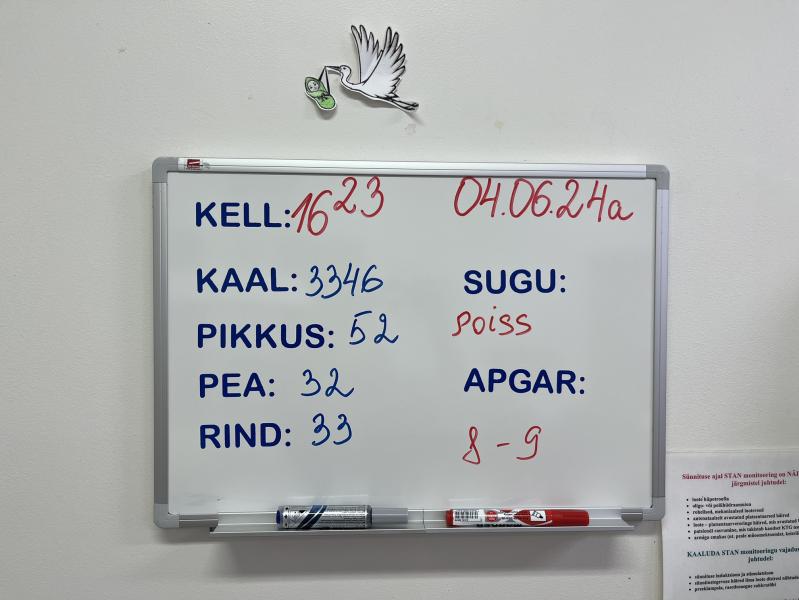 KELL: 16 23 04.06.24a
KAAL: 3346
SUGU:
poiss
PIKKUS: 52
PEA: 32
APGAR:
8 - 9
RIND: 33
Sünnituse ajal STAN monitooring on
järgmistel juhtudel:
loote hüpotroofia
oligo- või polühüdramnion
KAALUDA STAN monitooringu
juhtudel: